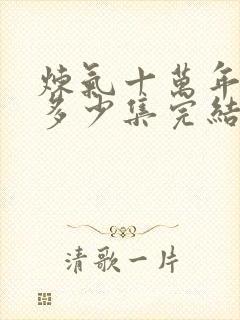 煉氣十萬年
多少集完結
清歌一片